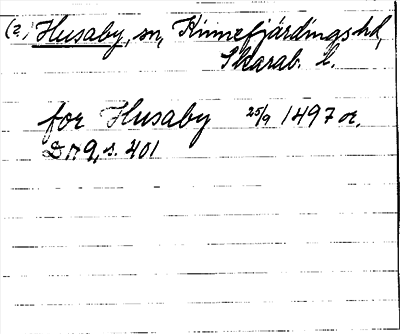 (2.) Husaby, sn, Kinnefjärdings hd,
Skarab. l.
for Husaby 25/9 1497 or.
DN 9, s. 401